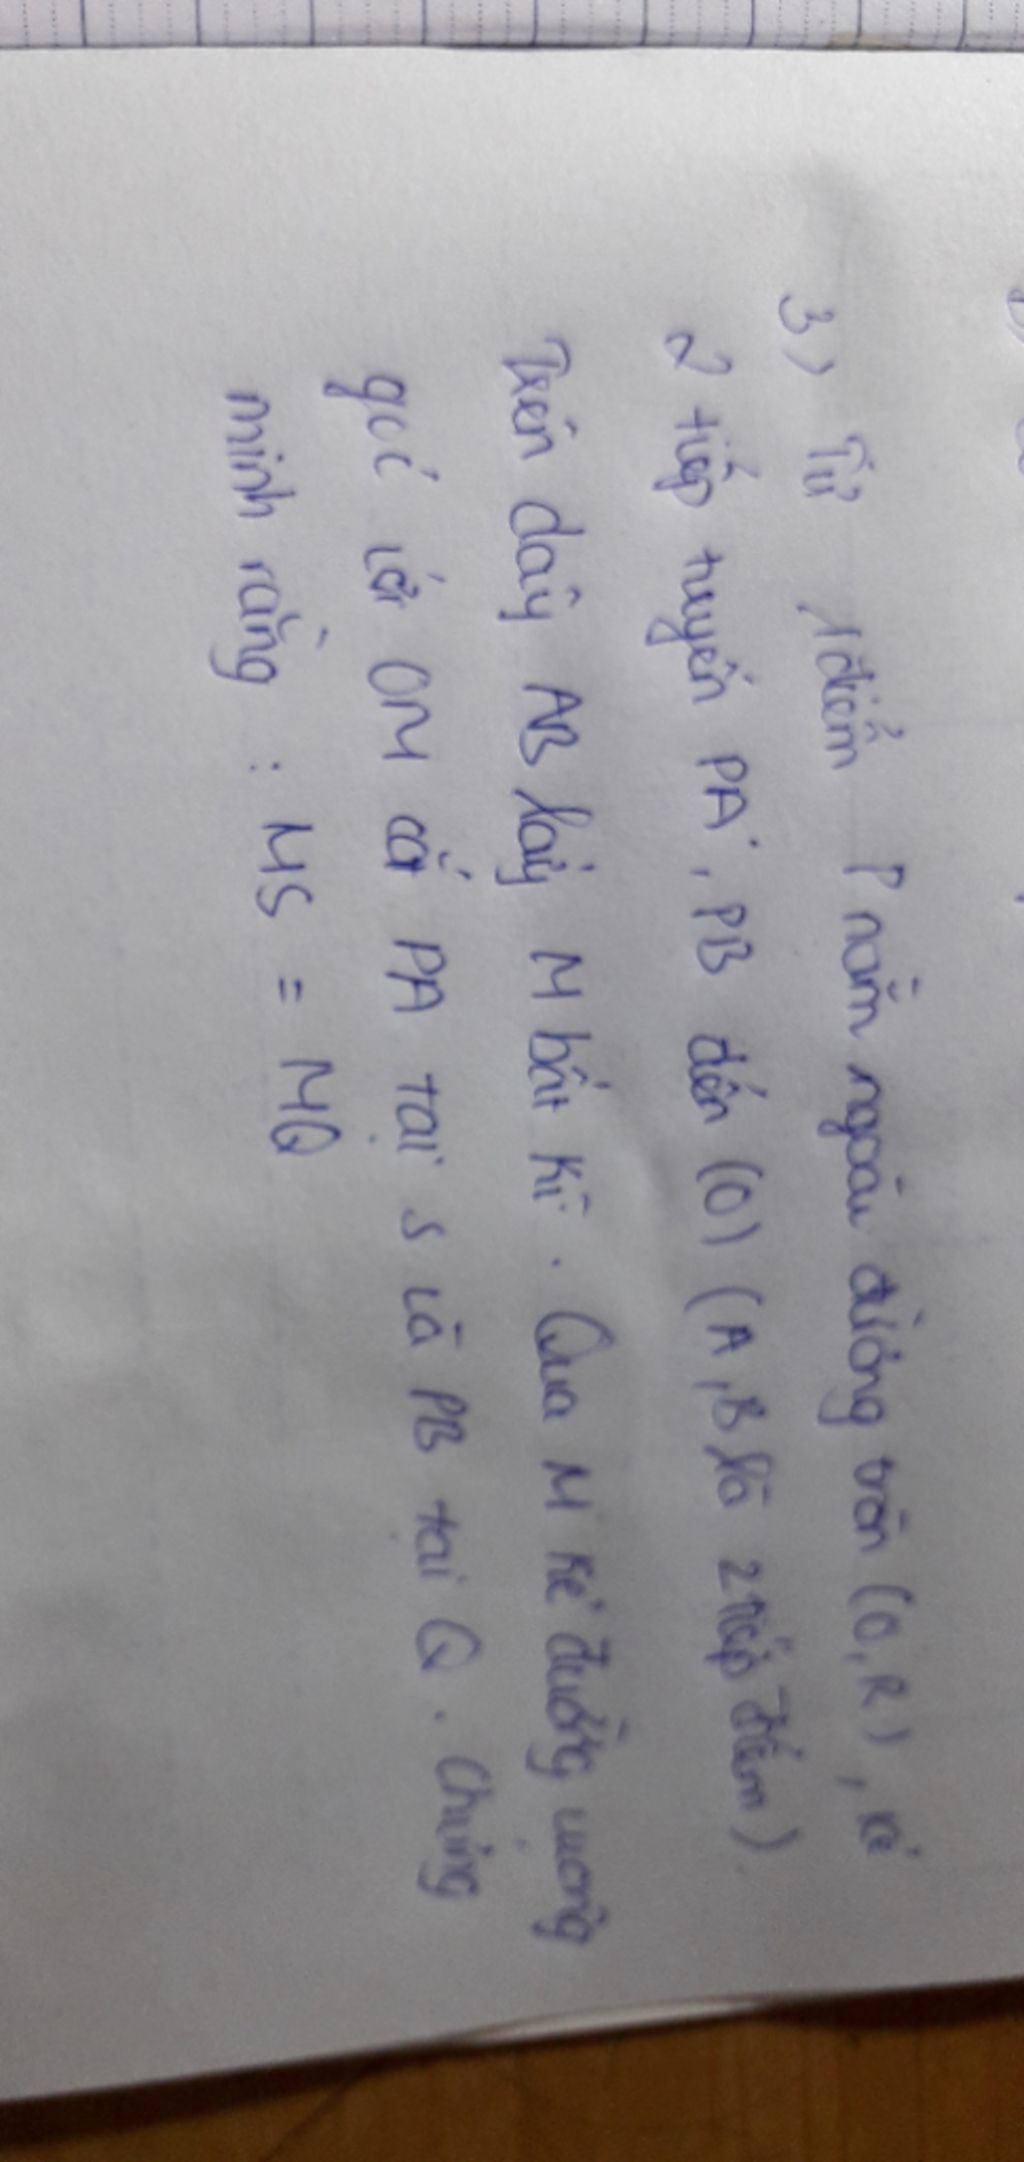 3) Từ 1 điểm P nằm ngoài đường tròn (O,R), kẻ
2 tiếp tuyến PA, PB đến (O) (A, B là 2 tiếp điểm).
Trên dây AB lấy M bất kì. Qua M kẻ đường vuông
góc với OM cắt PA tại S và PB tại Q. Chứng
minh rằng : MS = MQ